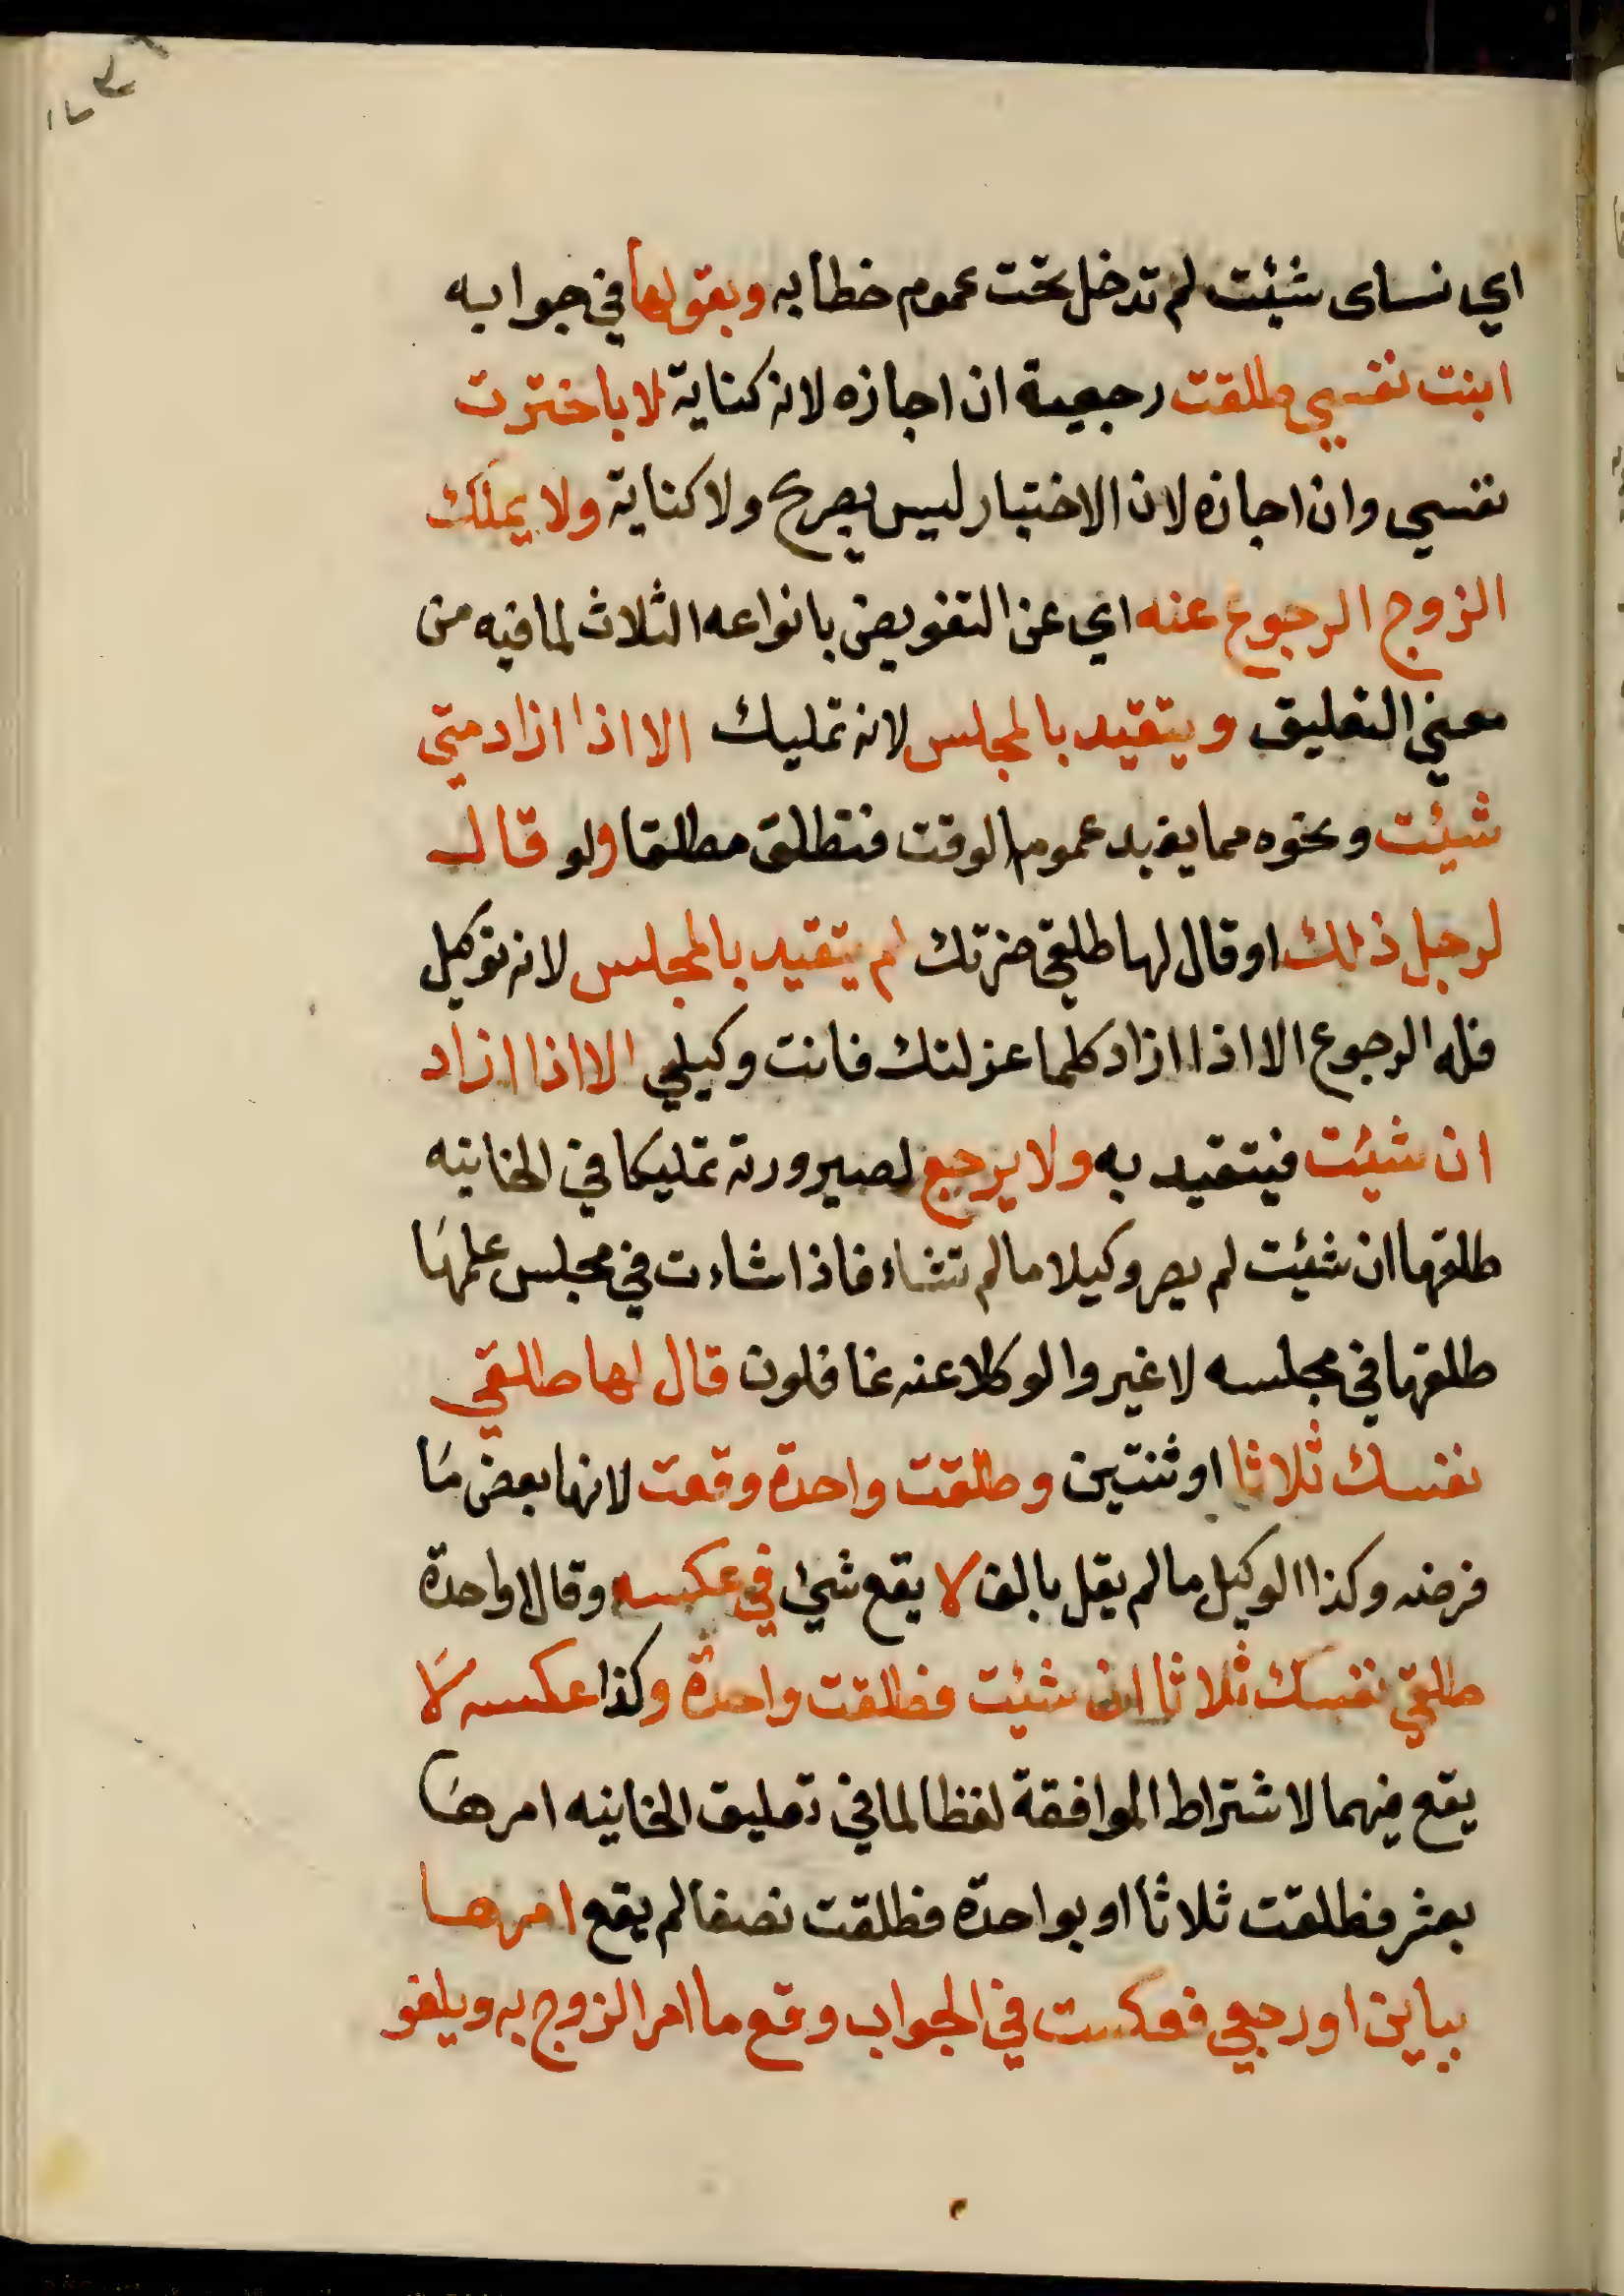 اي نساى شئت لم تدخل تحت عموم خطابه وبقولها في جوابه
ابنت نفسي طلقت رجعية ان اجازه لانه كناية لا باخترت
نفسي وان اجازه لان الاختيار ليس بصريح ولا كناية ولا يملك
الزوج الرجوع عنه اي عن التفويض بانواعه الثلاث لما فيه من
معنى التعليق ويتقيد بالمجلس لانه تمليك الا اذا ازاد متى
شيئت ونحوه مما يفيد عموم الوقت فتطلق مطلقا ولو قال
لرجل ذلك او قال لها طلقي ضرتك لم يتقيد بالمجلس لانه توكيل
فله الرجوع الا اذا ازاد كلما عزلتك فانت وكيلي الا اذا ازاد
ان شيئت فيتقيد به ولا يرجع لصيرورته تمليكا في الخانيه
طلقها ان شئت لم يصر وكيلا ما لم تشاء فاذا شاءت في مجلس علمها
طلقها في مجلسه لا غير والوكلا عنه غافلون قال لها طلقي
نفسك ثلاثا او ثنتين وطلقت واحدة وقعت لانها بعض ما
فرضه وكذا الوكيل ما لم يقل بالف لا يقع شئ في عكسه وقالا واحدة
طلقي نفسك ثلاثا ان شيئت فطلقت واحدة وكذا عكسه لا
يقع فيهما لاشتراط الموافقة لفظا لما في تعليق الخانيه امرها
بعشر فطلقت ثلاثا او بواحدة فطلقت نصفا لم يقع امرها
بباين او رجعي فعكست في الجواب وقع ما امر الزوج به ويلغو